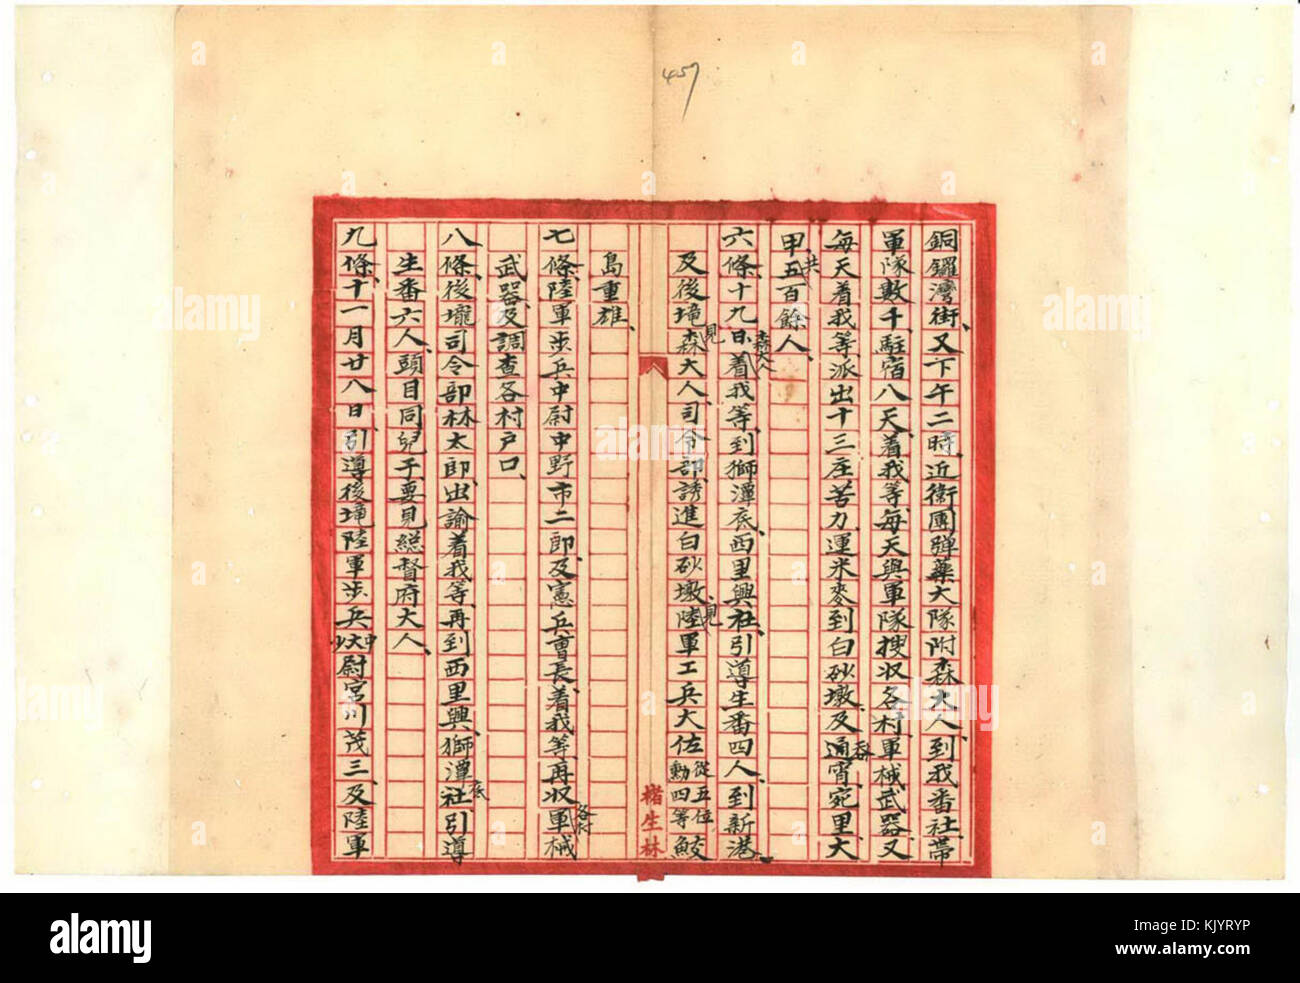 457
銅鑼灣街、又下午二時、近衞團弾藥大隊附森大人、到我番社、帶
軍隊數千、駐宿八天、着我等、每天與軍隊搜收各村軍械武器、又
每天着我等、派出十三庄苦力、運米麥到白砂墩、及通宵、宛里、大
甲、共五百餘人、
六條、十九日、森大人着我等、到獅潭底、西里興社、引導生番四人、到新港、
及後壠、見森大人司令部、誘進白砂墩、見陸軍工兵大佐從五位勳四等鮫
島重雄、
楮生林
七條、陸軍步兵中尉中野市二郎、及憲兵曹長、着我等、再收各村軍械
武器、及調查各村戶口、
八條、後壠司令部林太郎、出諭着我等、再到西里興、獅潭底社引導
生番六人、頭目同兒子、要見總督府大人、
九條、十一月廿八日、引導後壠陸軍步兵中尉宮川茂三、及陸軍
alamy
Image ID: KJYRYP
www.alamy.com